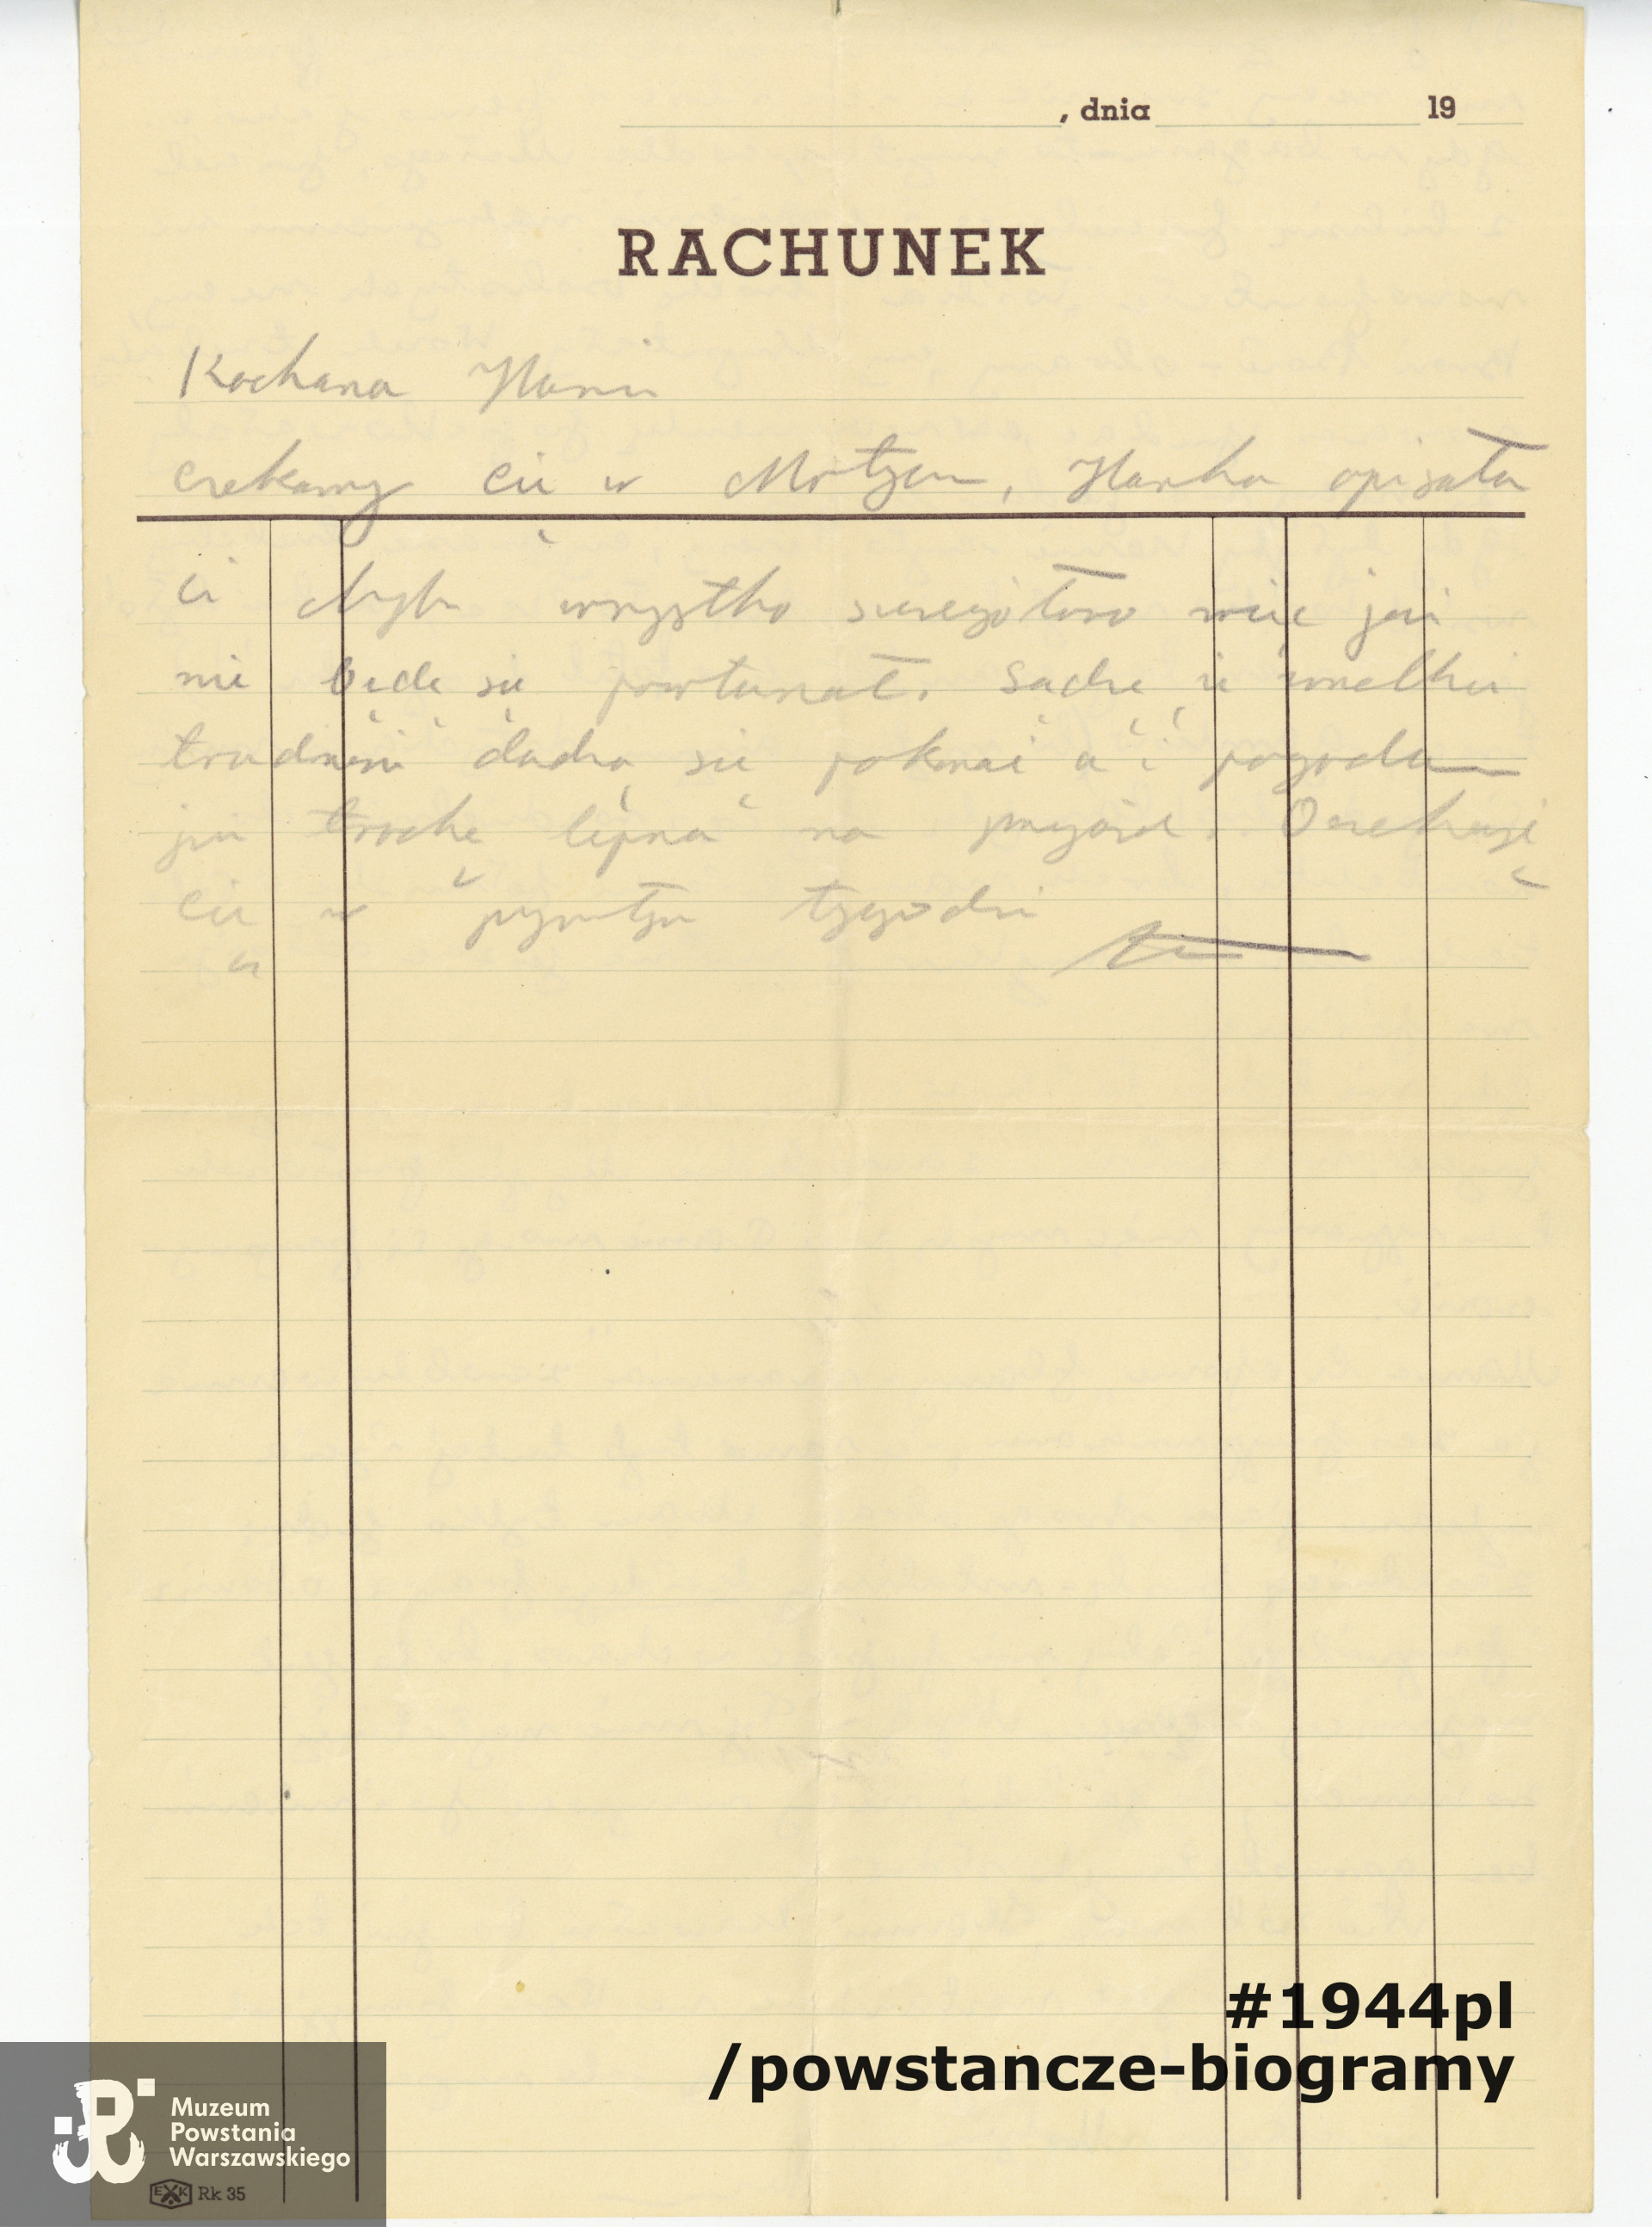 , dnia 19
RACHUNEK
Kochana Haniu
czekamy cię w Hanka opisała
ci chyba wszystko szczegółowo więc już
nie będę się powtarzał. Sądzę że wszelkie
trudności dadzą się pokonać a i pogoda
już trochę lepsza na przyjazd. Oczekuję
cię w przyszłym tygodniu
#1944pl
/powstancze-biogramy
Muzeum
Powstania
Warszawskiego
EKK Rk 35